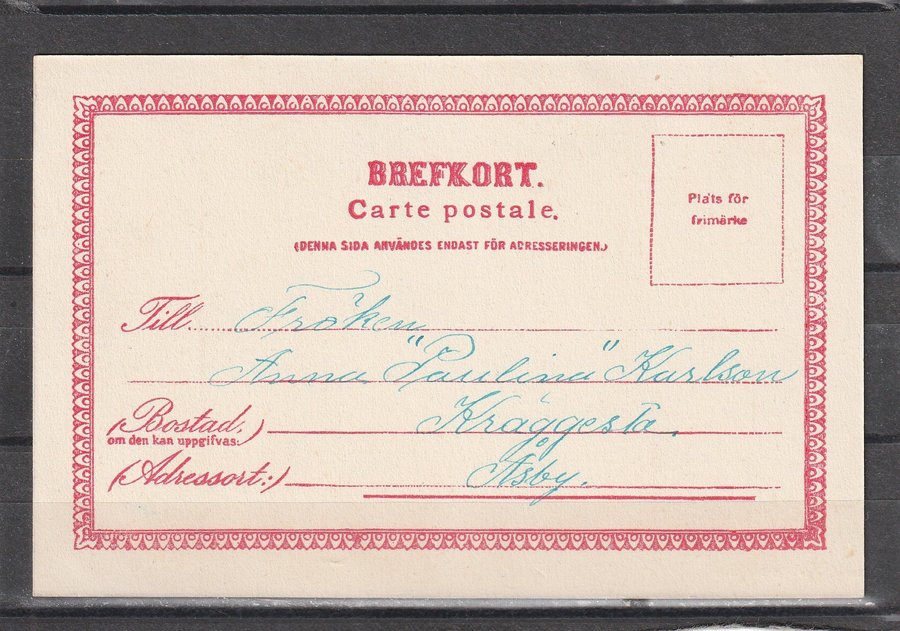 BREFKORT.
Carte postale.
(DENNA SIDA ANVÄNDES ENDAST FÖR ADRESSERINGEN.)
Plats för
frimärke
Till Fröken
Anna "Paulina" Karlson
(Bostad:) Kräggesta.
om den kan uppgifvas.
(Adressort:) Åsby.